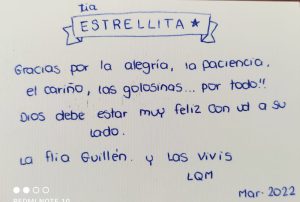 tía
ESTRELLITA ★
Gracias por la alegría, la paciencia,
el cariño, las golosinas... por todo!!
Dios debe estar muy feliz con ud a su
lado.
La flia Guillén. y Las Vivis
LQM
Mar. 2022
REDMI NOTE 10